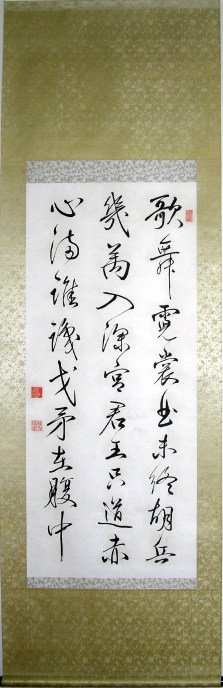 歌舞霓裳曲未終胡兵
幾萬入深宮君王只道赤
心滿誰識戈矛在腹中